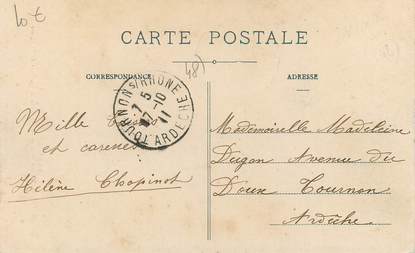 10 €
CARTE POSTALE
CORRESPONDANCE
ADRESSE
48)
TOURNON S/RHONE
5
7-10
11
ARDECHE
Mille
et caresses
Hélène Chopinot
Mademoiselle Madeleine
Dugon Avenue du
Doux Tournon
Ardèche